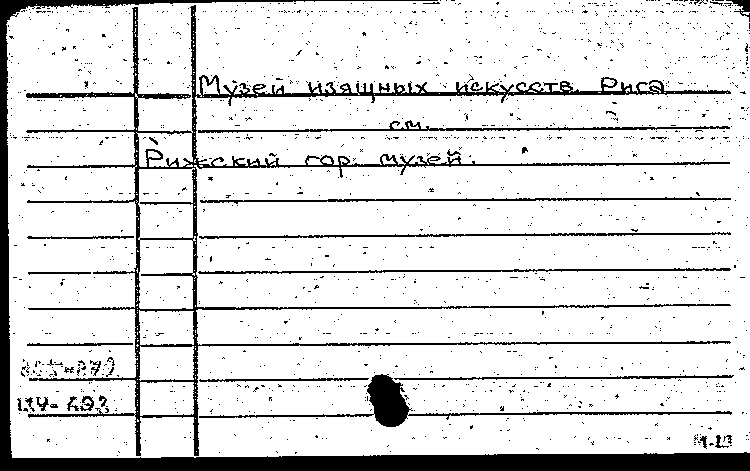 Музей изящных искусств. Рига
см.
Рижский гор. музей.